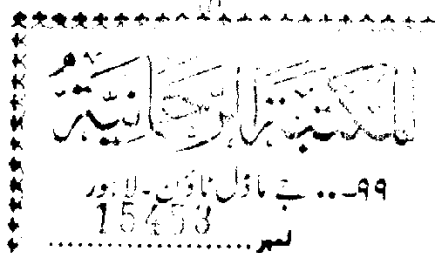 المكتبة الرحمانية
۹۹... جے ماڈل ٹاؤن۔ لاہور
15453
نمبر....................